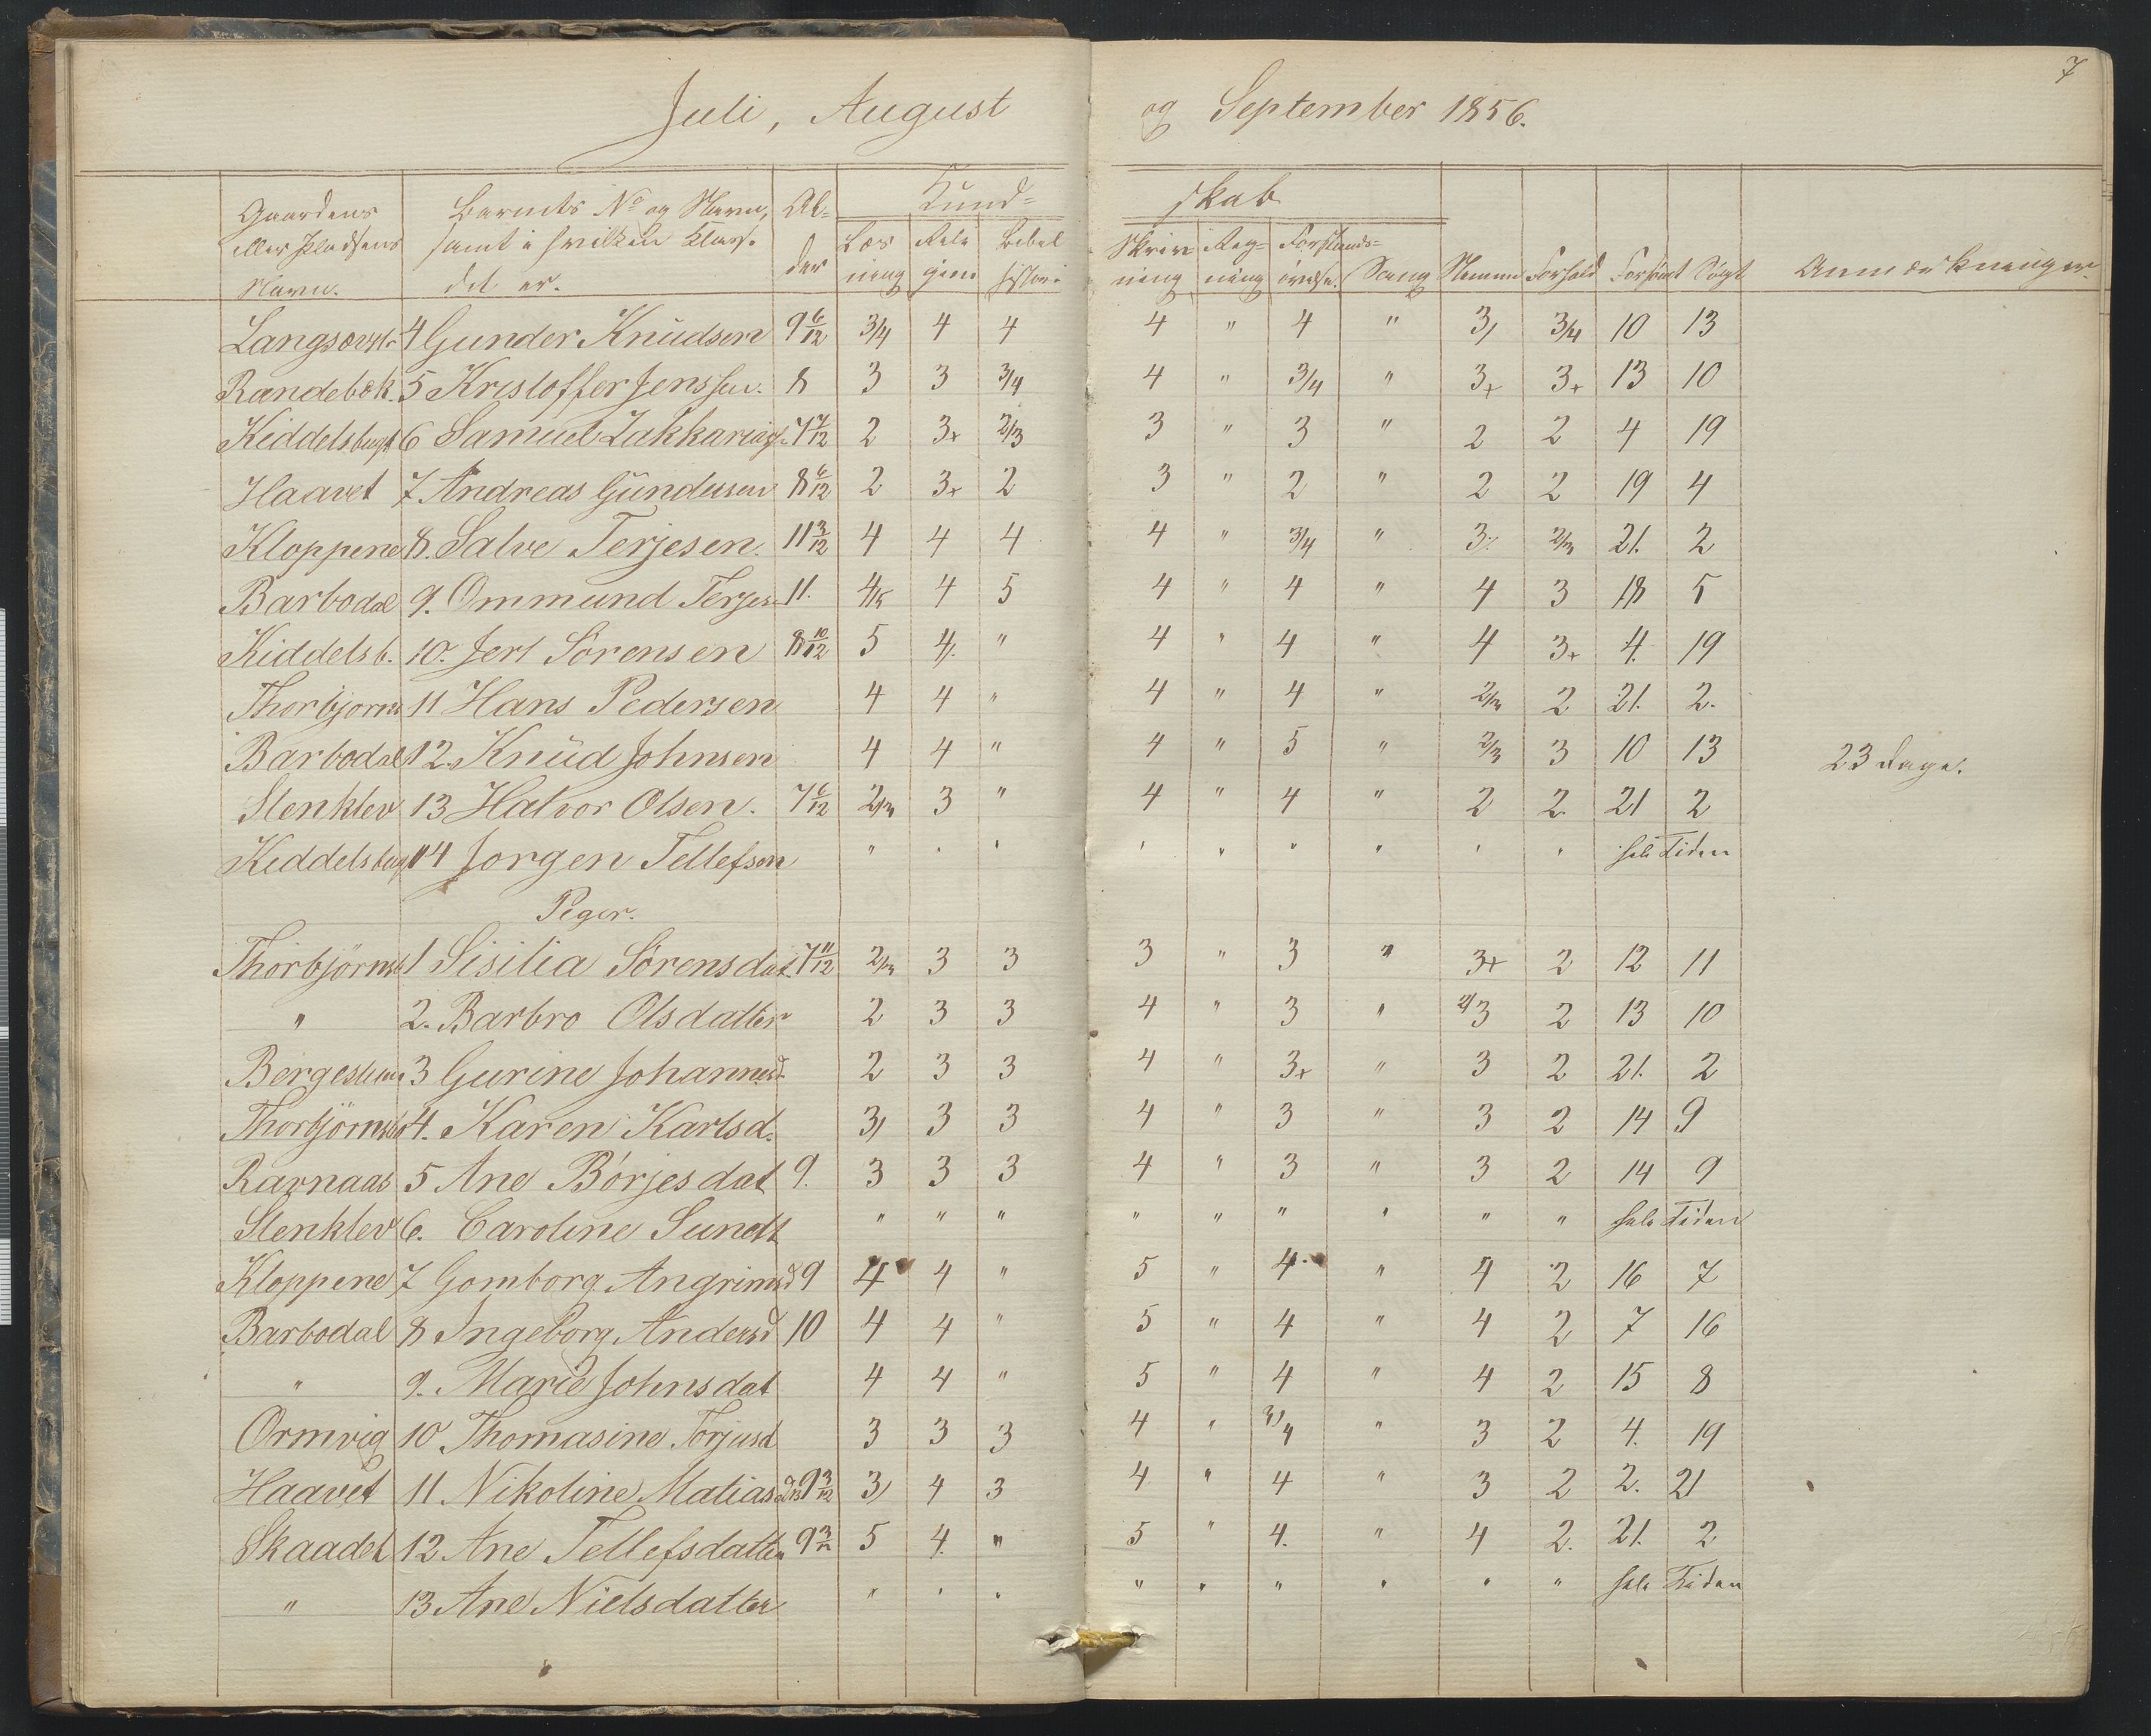 7
Juli, August og September 1856.
Gaardens eller Pladsens Navn. Barnets No og Navn, samt i hvilken Klasse det er. Alder Kundskab Læsning Religion Bibelhistorie Skrivning Regning Forstandsøvelse. Sang Stemme Forhold Forsømt Søgt Anmærkninger.
4 Gunder Knudsen 9 6/12 3/4 4 4 4 " 4 " 3/ 3/4 10 13
Randebøk. 5 Kristoffer Jenssen. 8 3 3 3/4 4 " 3/4 " 3+ 3+ 13 10
Kiddelsbugt 6 Samuel 7 7/12 2 3+ 2/3 3 " 3 " 2 2 4 19
Haavet 7 Andreas Gundersen 8 6/12 2 3+ 2 3 " 2 " 2 2 19 4
Kloppene 8. Salve Terjesen. 11 3/12 4 4 4 4 " 3/4 " 3/. 2/3 21. 2
Barbodal 9. Ommund Terjesen 11. 4/5 4 5 4 " 4 " 4 3 18 5
Kiddelsb. 10. Jerl Sörensen 8 10/12 5 4/. " 4 " 4 " 4 3+ 4. 19
Thorbjorns 11 Hans Pedersen 4 4 " 4 " 4 " 2/3 2 21. 2.
Barbodal 12. Knud Johnsen 4 4 " 4 " 5 " 2/3 3 10 13 23 Dage.
Stenklev 13 Halvor Olsen. 7 6/12 2/3 3 " 4 " 4 " 2 2. 21 2
Kiddelsbugt 14 Jorgen Tellefsen " " " " " " " " " hele Tiden
Piger.
Thorbjörnsb 1 Sisilia Sörensdat. 7 11/12 2/3 3 3 3 " 3 " 3+ 2 12 11
" 2. Barbro Olsdatter 2 3 3 4 " 3 " 2/3 2 13 10
3 Gurine Johannesd. 2 3 3 4 " 3+ " 3 2 21. 2
Thorbjörnsb 4. Karen Karlsd. 3/ 3 3 4 " 3 " 3 2 14 9
Ravnaas 5 Ane Börjesdat 9. 3 3 3 4 " 3 " 3 2 14 9
Stenklev 6. Caroline Sundt " " " " " " " " " hele Tiden
Kloppene 7 Gomborg Angrimsd 9 4 4 " 5 " 4. " 4 2 16 7
Barbodal 8 Ingeborg Andersd 10 4 4 " 5 " 4 " 4 2 7 16
" 9. Marie Johnsdat 4 4 " 5 " 4 " 4 2 15 8
Ormvig 10 Thomasine Torjusd 3 3 3 4 " 3/4 " 3 2 4. 19
Haavet 11 Nikoline Matiasd 9 3/12 3/ 4 3 4 " 4 " 3 2 2. 21
Skaadet 12 Ane Tellefsdatter 9 3/12 5 4. " 5 " 4. " 4 2. 21. 2
" 13 Ane Nielsdatter " " " " " " " " " hele Tiden